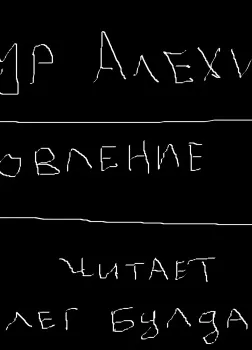 ур Алехи
овление
читает
лег Булда